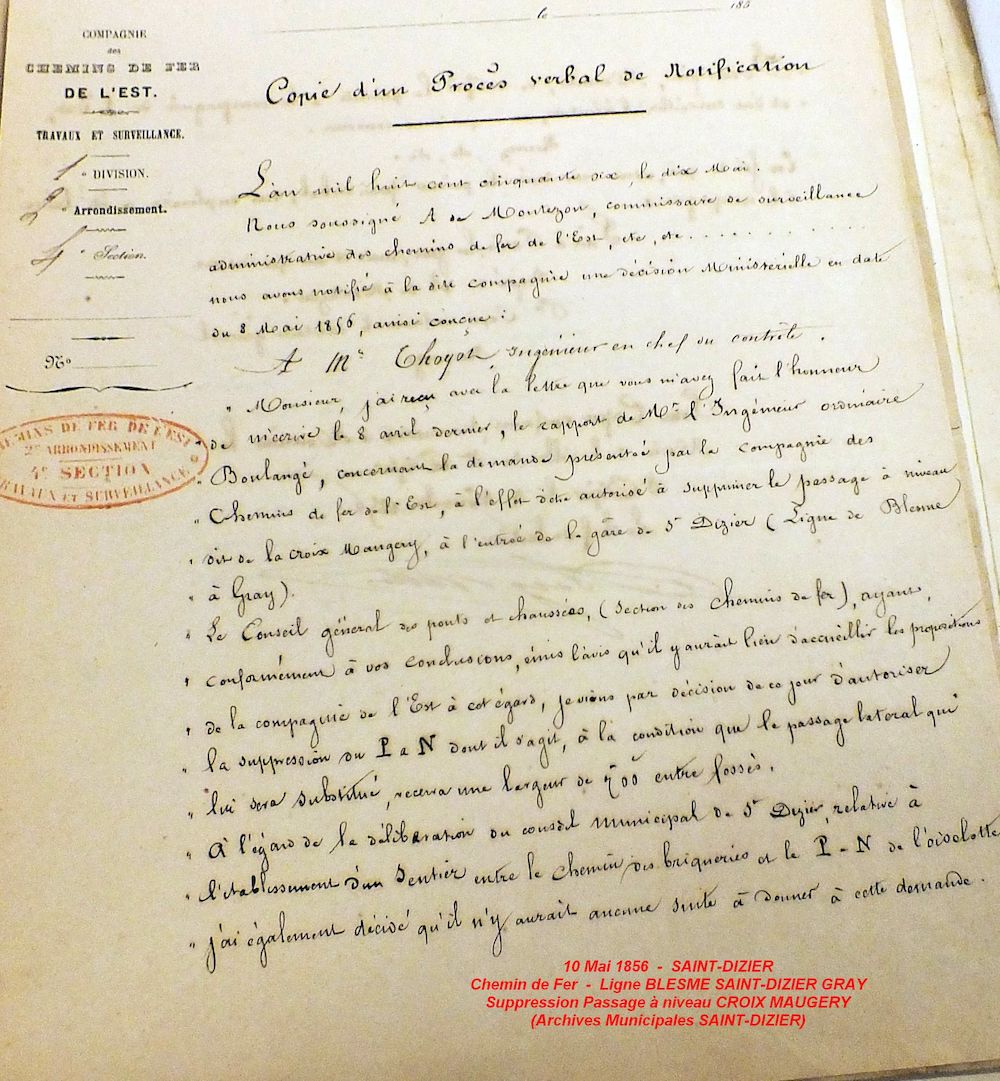 le 185
COMPAGNIE
des
CHEMINS DE FER
DE L'EST.
TRAVAUX ET SURVEILLANCE.
1e DIVISION.
2e Arrondissement.
4e Section.
No
CHEMINS DE FER DE L'EST
2e ARRONDISSEMENT
4e SECTION
TRAVAUX ET SURVEILLANCE
Copie d'un Procès verbal de Notification
L'an mil huit cent cinquante six, le dix Mai.
Nous soussigné A de Montezon, commissaire de surveillance
administrative des chemins de fer de l'Est, etc, etc..............
nous avons notifié à la dite compagnie une décision Ministerielle en date
du 8 Mai 1856, ainsi conçue :
A Mr Thoyot, Ingénieur en chef du contrôle.
" Monsieur, j'ai reçu avec la lettre que vous m'avez fait l'honneur
" de m'écrire le 8 avril dernier, le rapport de Mr l'Ingénieur ordinaire
" Boulangé, concernant la demande présentée par la compagnie des
" Chemins de fer de l'Est, à l'effet d'être autorisé à supprimer le passage à niveau
" dit de la croix Maugery, à l'entrée de la gâre de St Dizier (Ligne de Blesme
" à Gray).
" Le Conseil général des ponts et chaussées, (Section des Chemins de fer), ayant,
" conformément à vos conclusions, émis l'avis qu'il y aurait lieu d'accueillir les propositions
" de la compagnie de l'Est à cet égard, je viens par décision de ce jour d'autoriser
" la suppression du P à N dont il s'agit, à la condition que le passage lateral qui
" lui sera substitué, recevra une largeur de entre fossés.
" A l'égard de la délibération du conseil municipal de St Dizier, relative à
" l'établissement d'un Sentier entre le Chemin des briqueries et le P à N de l'oiselotte
" j'ai également décidé qu'il n'y aurait aucune suite à donner à cette demande.
10 Mai 1856 - SAINT-DIZIER
Chemin de Fer - Ligne BLESME SAINT-DIZIER GRAY
Suppression Passage à niveau CROIX MAUGERY
(Archives Municipales SAINT-DIZIER)